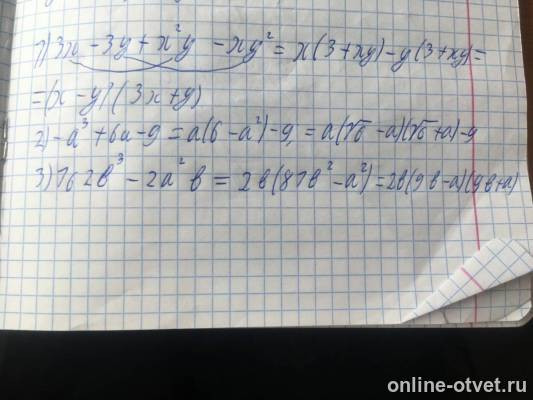 1) 3x - 3y + x²y - xy² = x(3+xy) - y(3+xy) =
= (x - y)(3x+y)
2) -a³ + 6a - 9 = a(6 - a²) - 9 = a(√6 - a)(√6 + a) - 9
3) 162b³ - 2a²b = 2b(81b² - a²) = 2b(9b - a)(9b + a)
online-otvet.ru